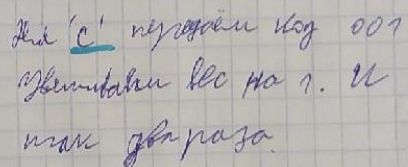 Для 'с' передаём код 001
Увеличиваем вес на 1. И
так два раза.